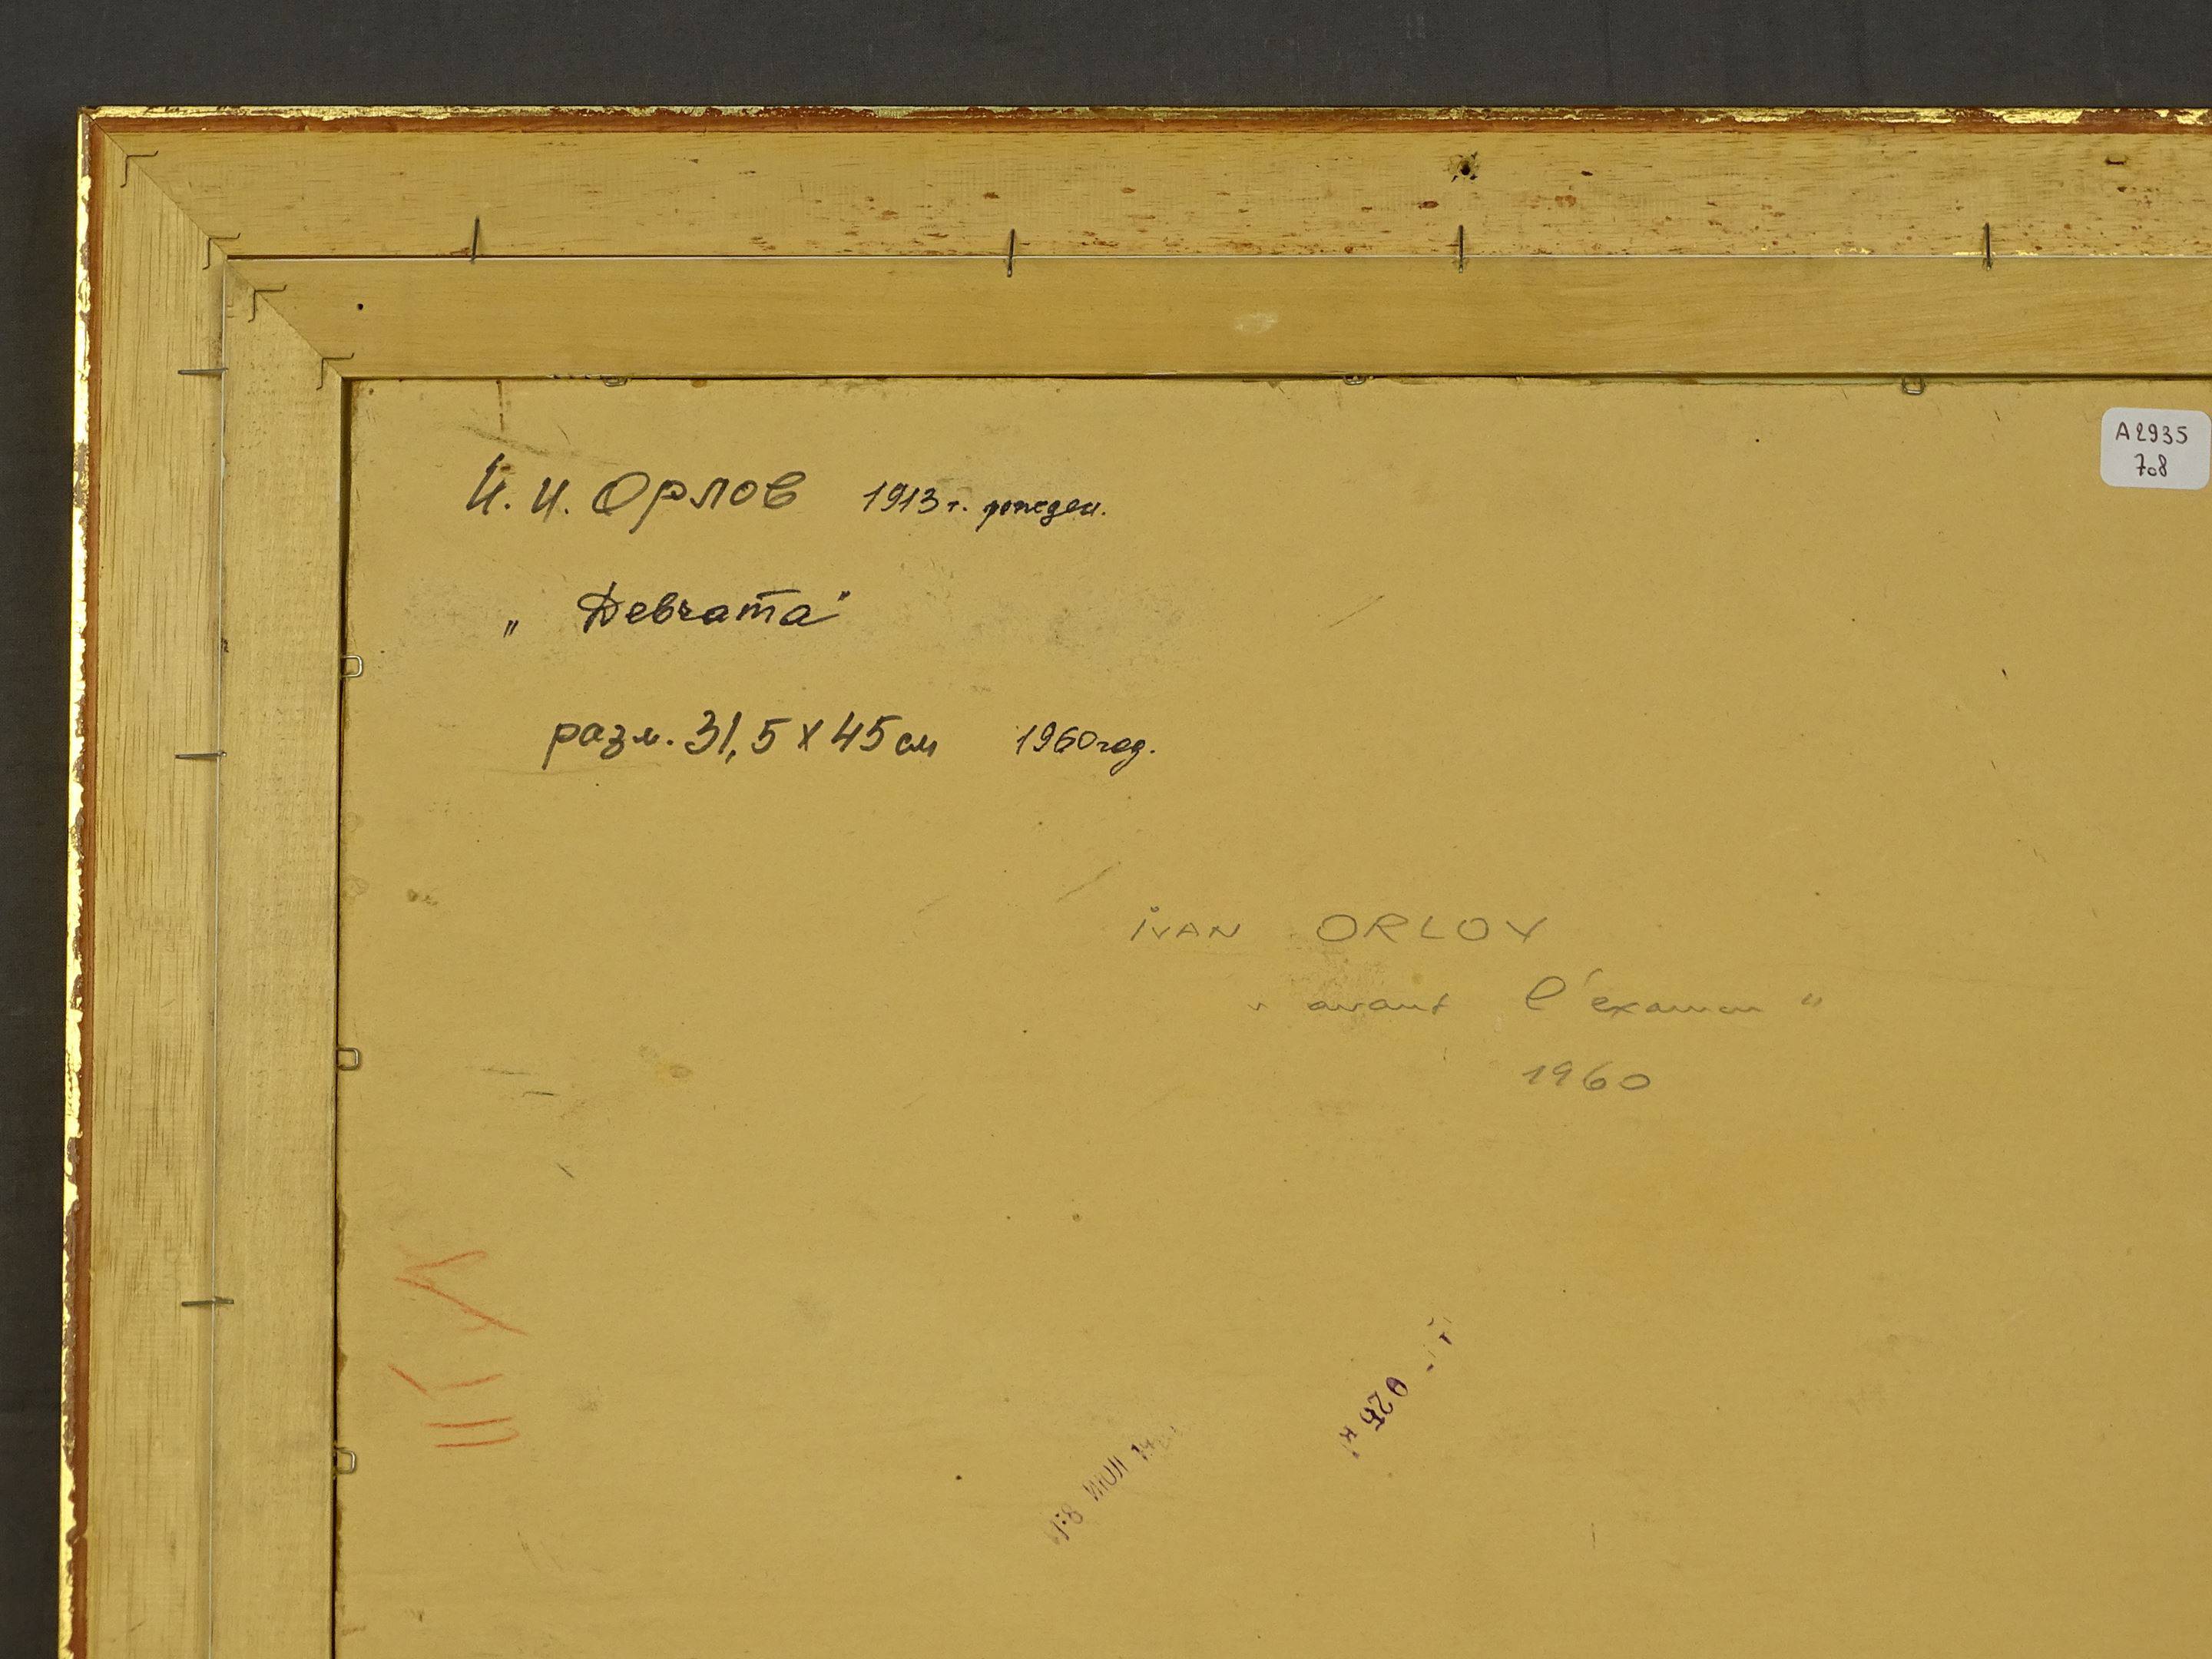 И. И. Орлов 1913 г. рожден.
„Девчата"
разм. 31,5 x 45 см 1960 год.
A2935
708
iVAN ORLOV
" avant l'examen "
1960
ИЮЛ
025